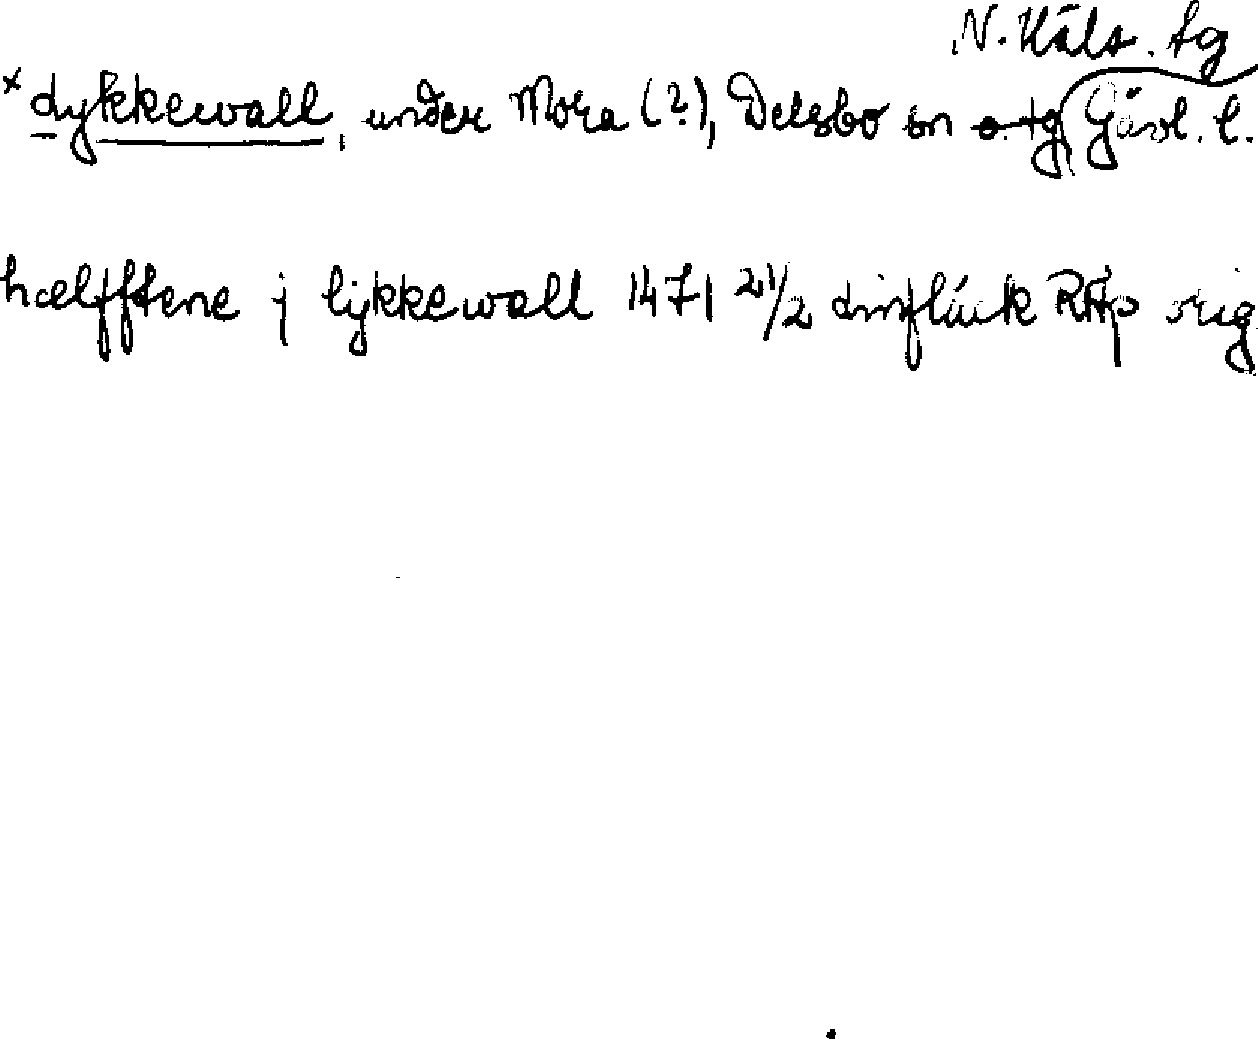 N. Häls. tg
× dykkewall, under Mora (?), Delsbo sn o. tg Gävl. l.
hælfftene j lykkewall 1471 21/2 RAp orig